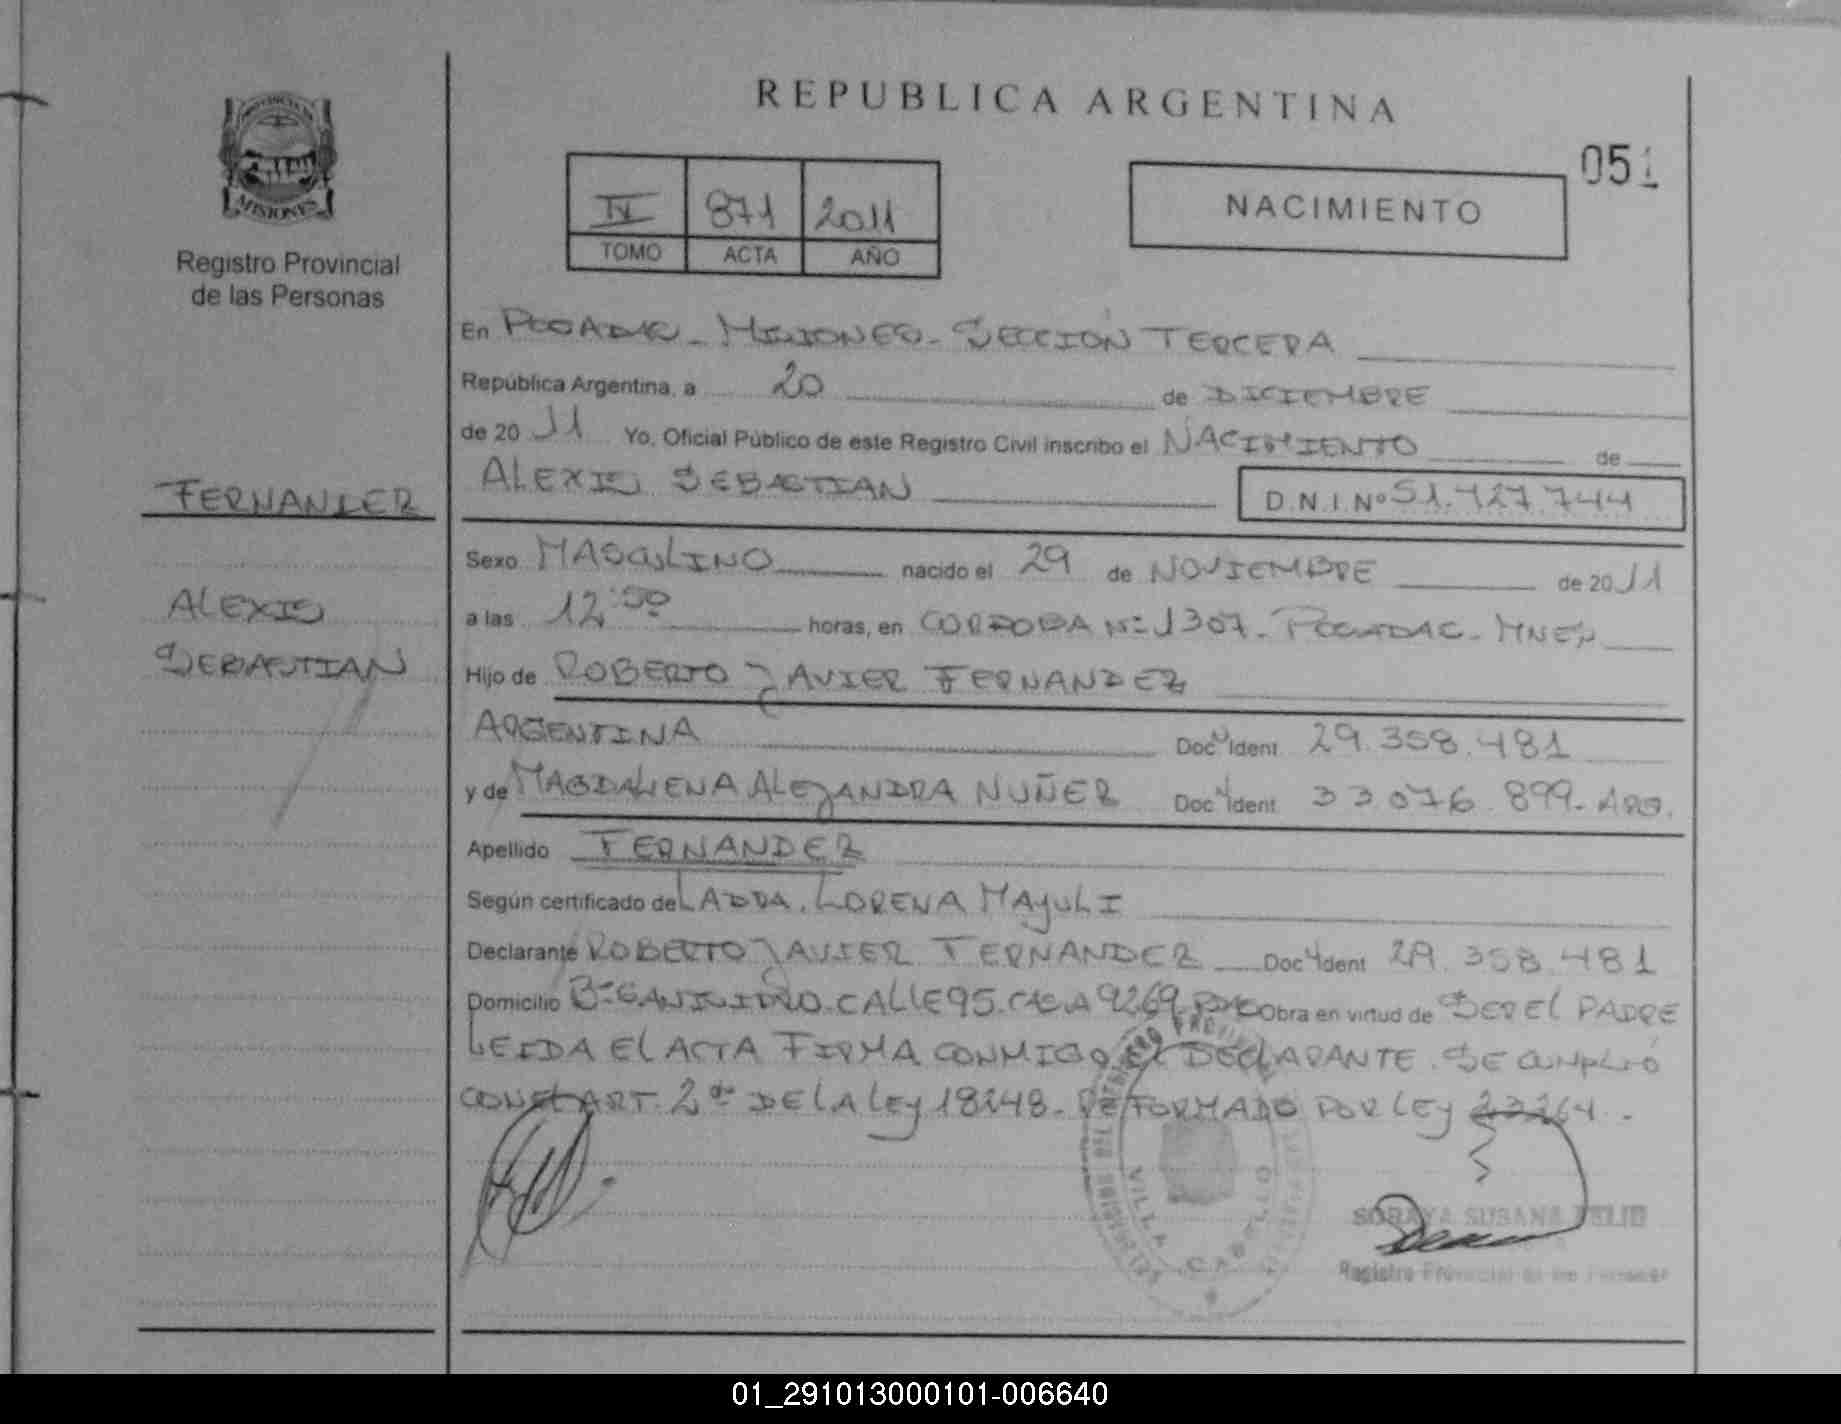 REPUBLICA ARGENTINA
051
IV 871 2011
TOMO ACTA AÑO
NACIMIENTO
MISIONES
Registro Provincial
de las Personas
FERNANDEZ
ALEXIS
SEBASTIAN
En POSADAS - MISIONES - SECCION TERCERA
República Argentina, a 20 de DICIEMBRE
de 2011 Yo, Oficial Público de este Registro Civil inscribo el NACIMIENTO de
ALEXIS SEBASTIAN D.N.I. Nº 51.727.744
Sexo MASCULINO nacido el 29 de NOVIEMBRE de 2011
a las 12:50 horas, en CORDOBA Nº 1307 - POSADAS - MNES
Hijo de ROBERTO JAVIER FERNANDEZ
ARGENTINA Doc. Ident. 29.358.481
y de MAGDALENA ALEJANDRA NUÑEZ Doc. Ident. 33.076.899 - ARG.
Apellido FERNANDEZ
Según certificado de LADDA, LORENA MAJULI
Declarante ROBERTO JAVIER FERNANDEZ Doc. Ident 29.358.481
Domicilio Bº SAN ISIDRO - CALLE 95 - CASA 9269 - PDAS Obra en virtud de SER EL PADRE
LEIDA EL ACTA FIRMA CONMIGO EL DECLARANTE. SE CUMPLIÓ
CON EL ART. 2do DE LA LEY 18248 - REFORMADO POR LEY 23264.-
VILLA CABELLO
SORAYA SUSANA
Registro Provincial de las Personas
01_291013000101-006640